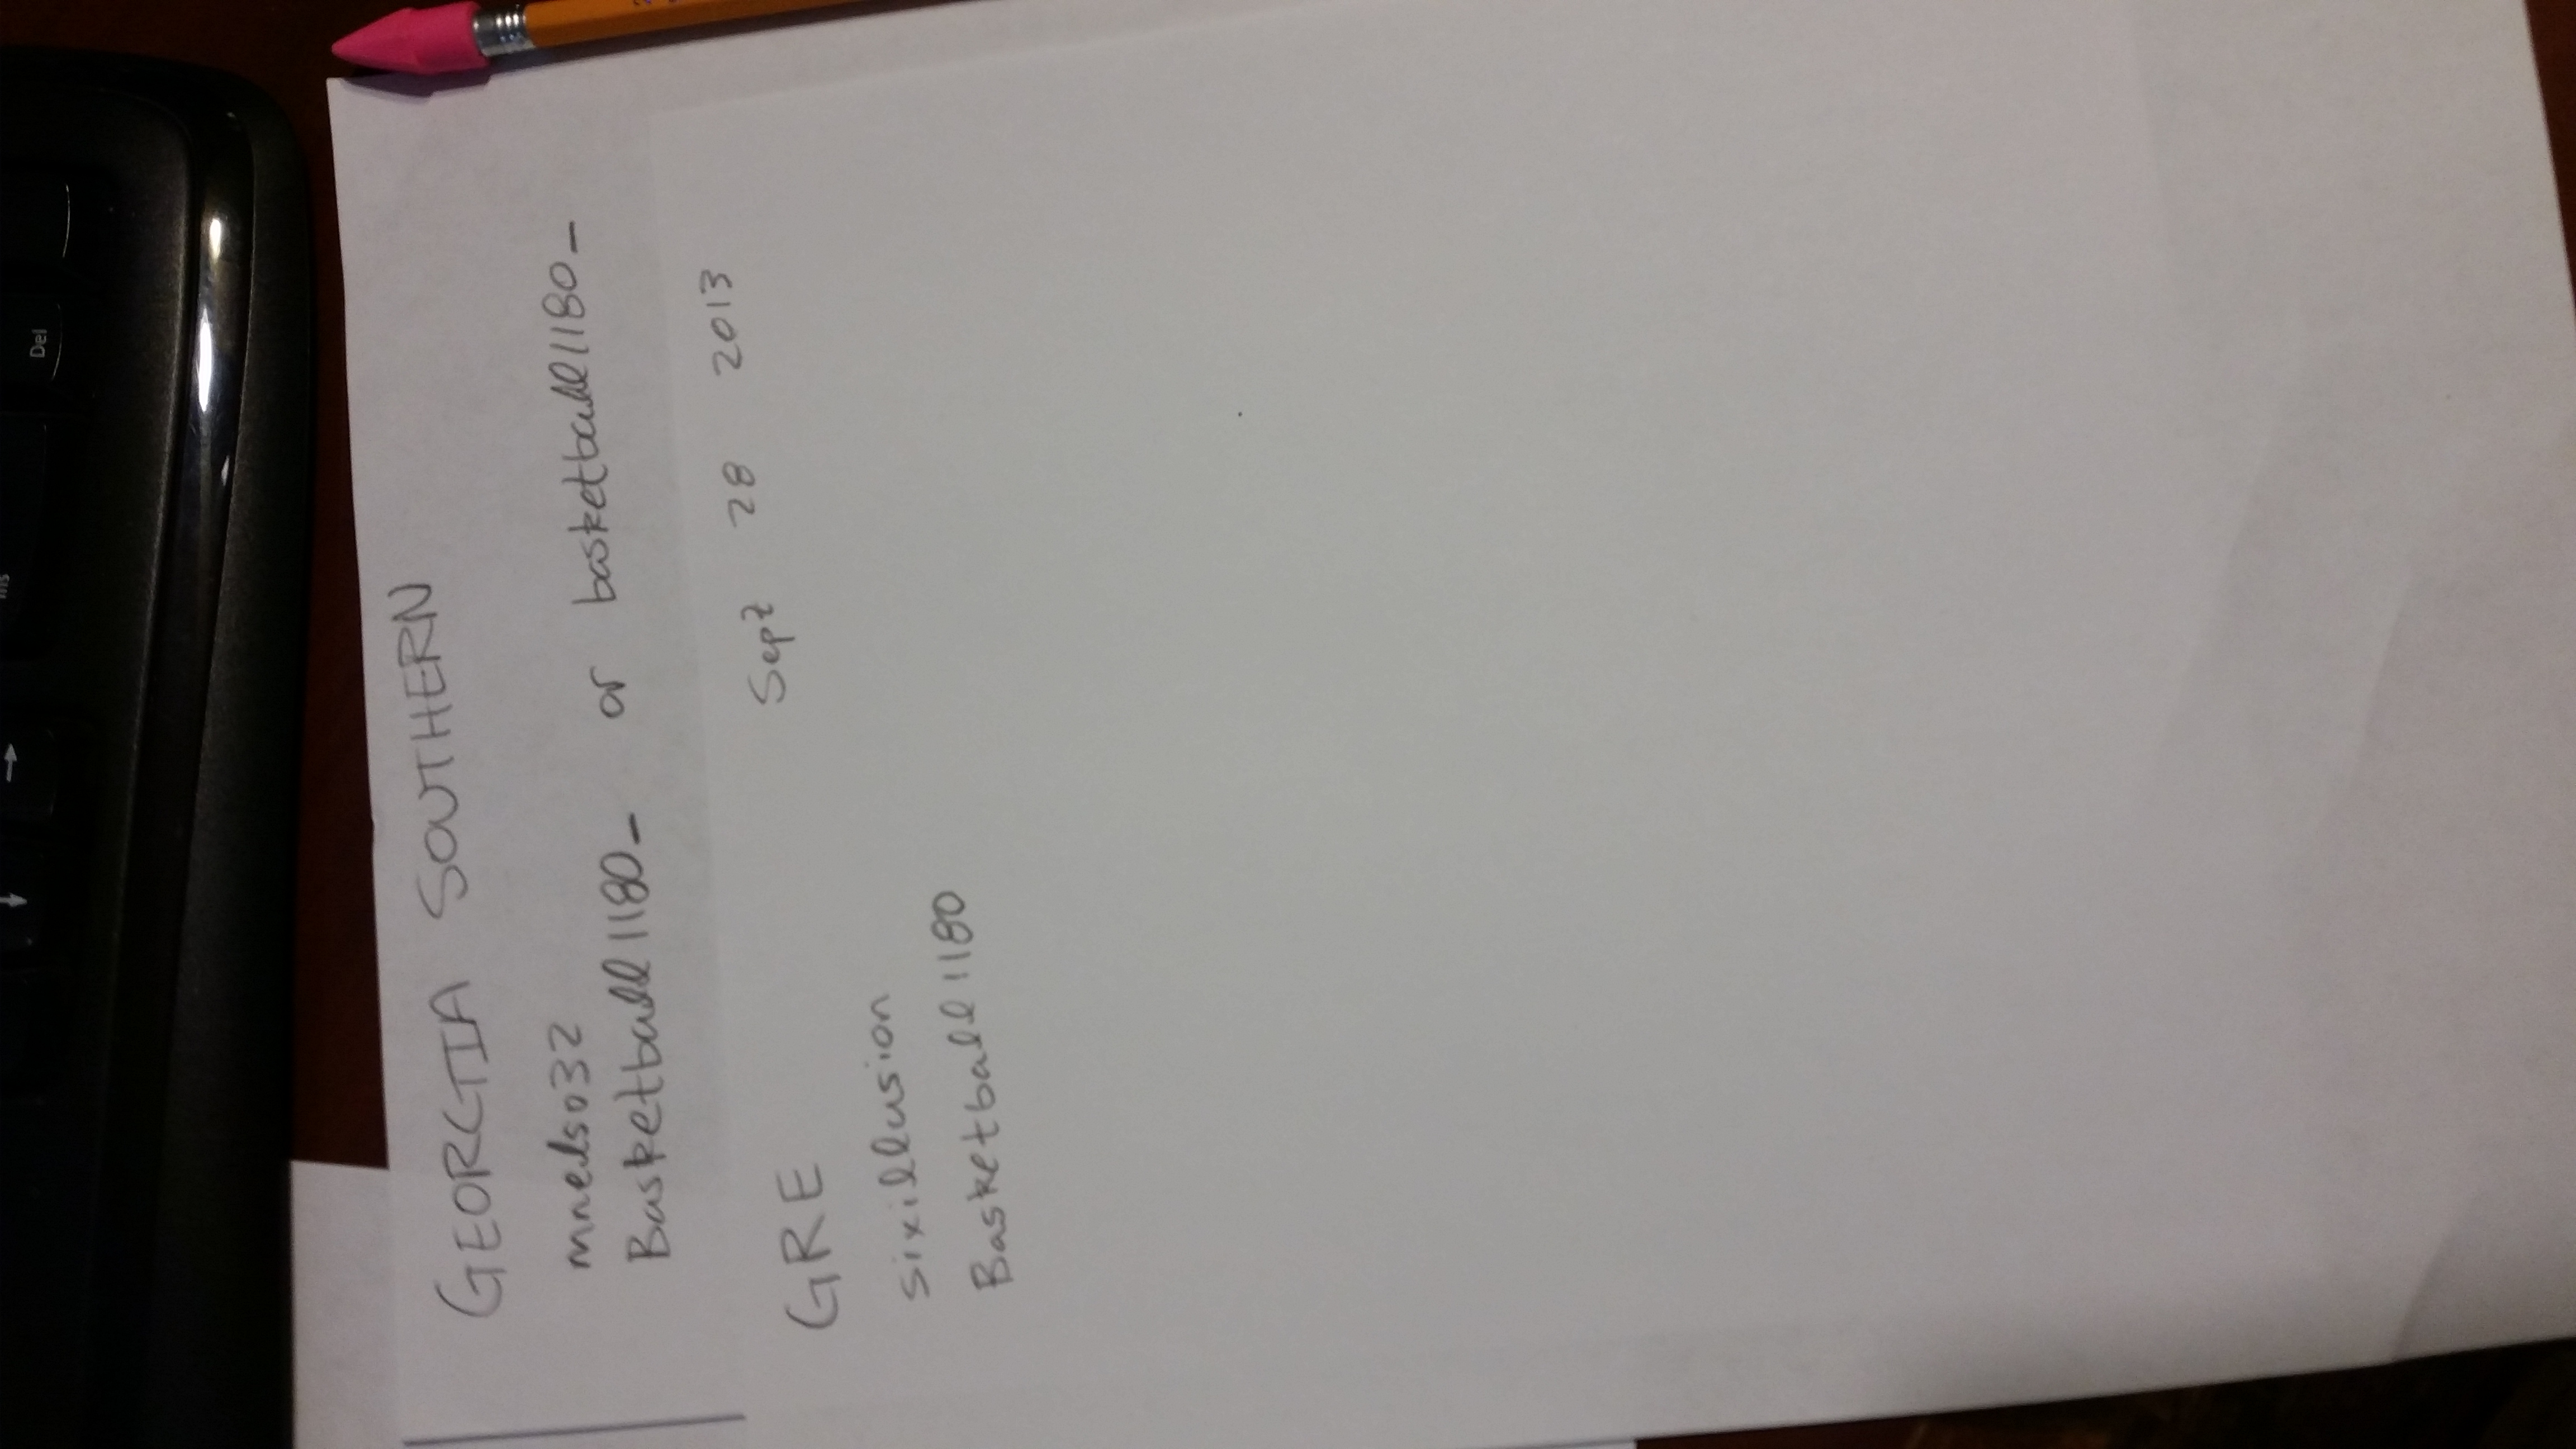 Ins
Del
GEORGIA SOUTHERN
mnelso32
Basketball1180_ or basketball1180_
Sept 28 2013
GRE
sixillusion
Basketball1180